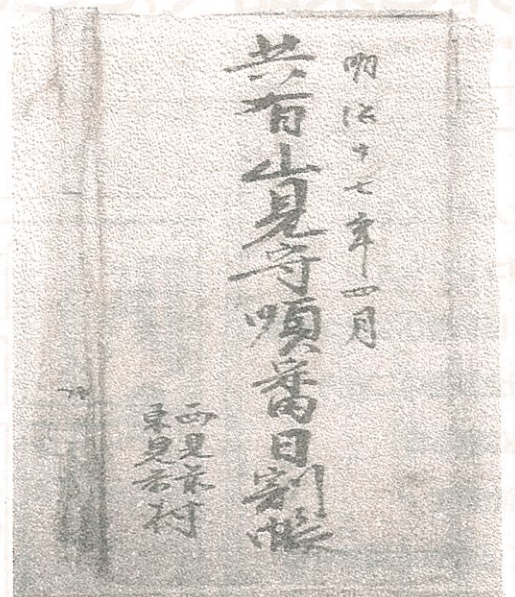 明治十七年四月
共有山見守順番日割帳
西見前
東見前村